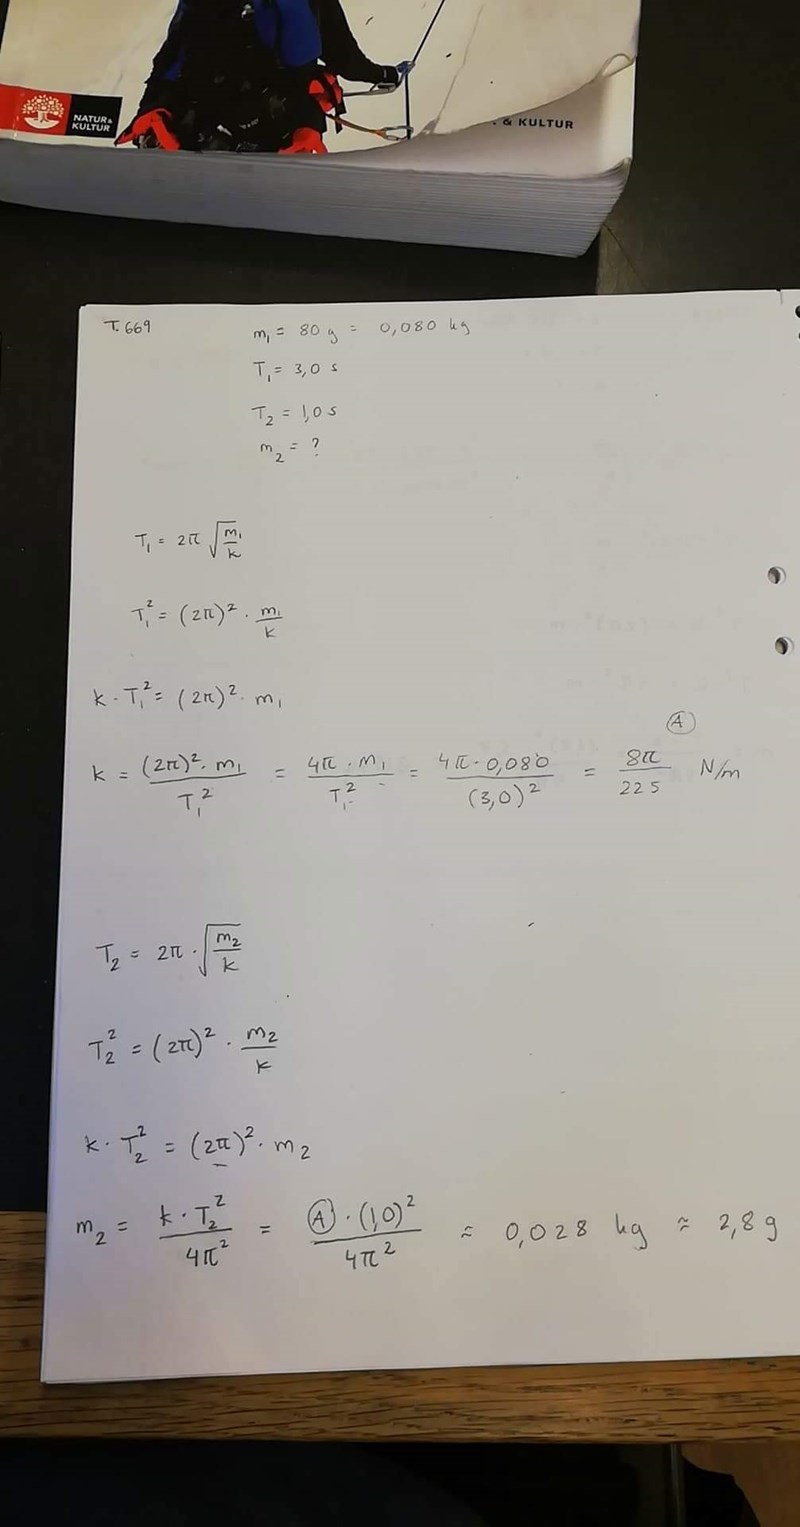 NATUR&
KULTUR
& KULTUR
T.669
m₁ = 80 g = 0,080 kg
T₁ = 3,0 s
T₂ = 1,0 s
m₂ = ?
T₁ = 2π √(m₁/k)
T₁² = (2π)² · m₁/k
k · T₁² = (2π)² · m₁
k = (2π)² · m₁ / T₁² = 4π · m₁ / T₁² = 4π · 0,080 / (3,0)² = 8π / 225 N/m Ⓐ
T₂ = 2π · √(m₂/k)
T₂² = (2π)² · m₂/k
k · T₂² = (2π)² · m₂
m₂ = k · T₂² / 4π² = Ⓐ · (1,0)² / 4π² ≈ 0,028 kg ≈ 2,8 g